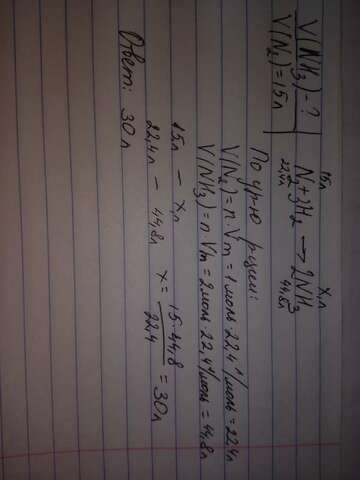 V(NH₃) - ?
V(N₂) = 15л
15л х,л
N₂ + 3H₂ → 2NH₃
22,4л 44,8л
По ур-ю р-ции:
V(N₂) = n · Vm = 1 моль · 22,4 л/моль = 22,4л
V(NH₃) = n · Vm = 2 моль · 22,4 л/моль = 44,8л
15л — х,л
22,4л — 44,8л х = 15·44,8 / 22,4 = 30л
Ответ: 30л